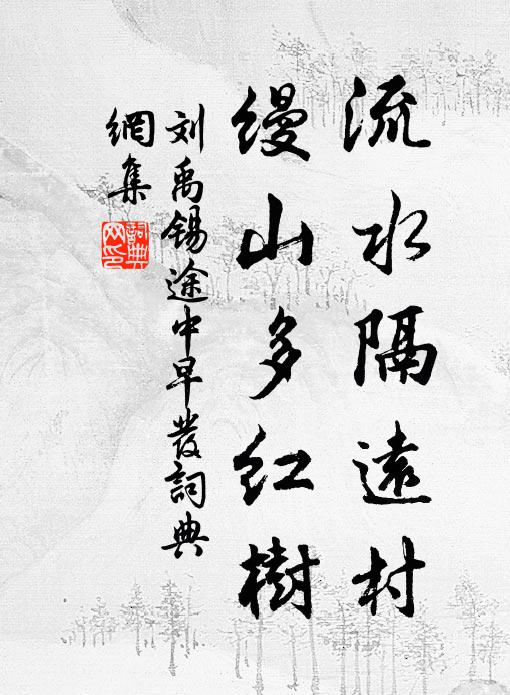 流水隔遠村
縵山多红樹
刘禹锡途中早發詞典
網集
詞典
网印